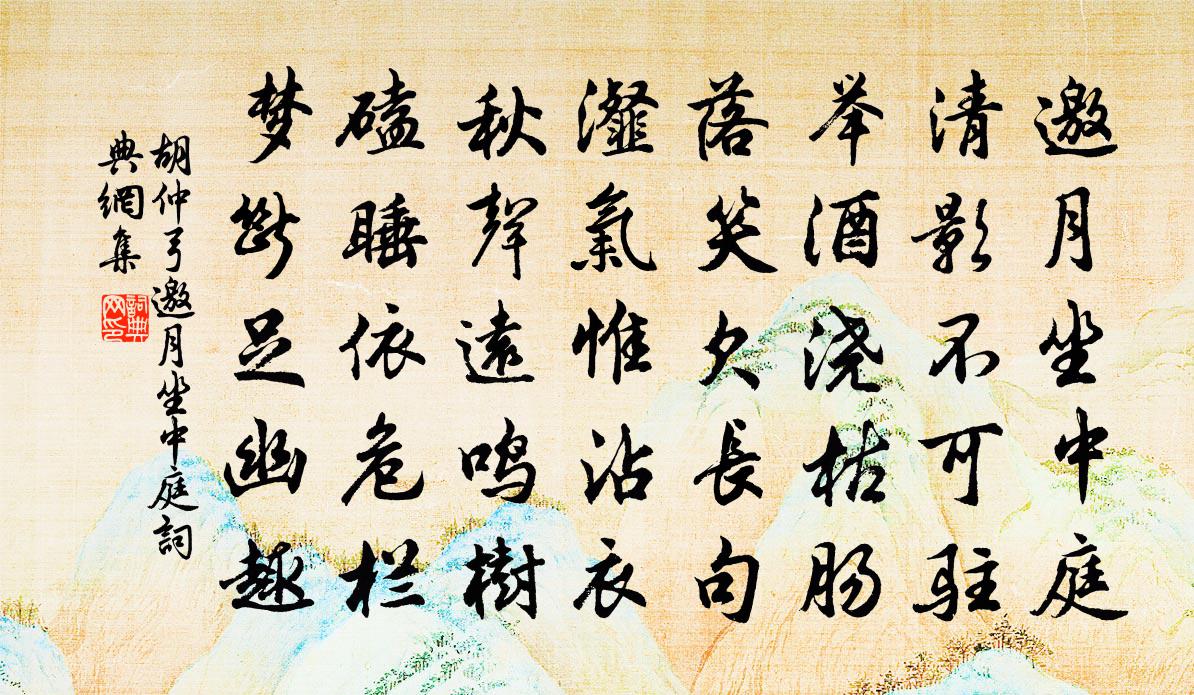 邀月坐中庭
清影不可駐
举酒浇枯肠
落笑欠長句
瀣氣惟沾衣
秋聲遠鳴樹
磕睡依危栏
梦斷足幽趣
胡仲弓邀月坐中庭詞
典網集
詞典网印